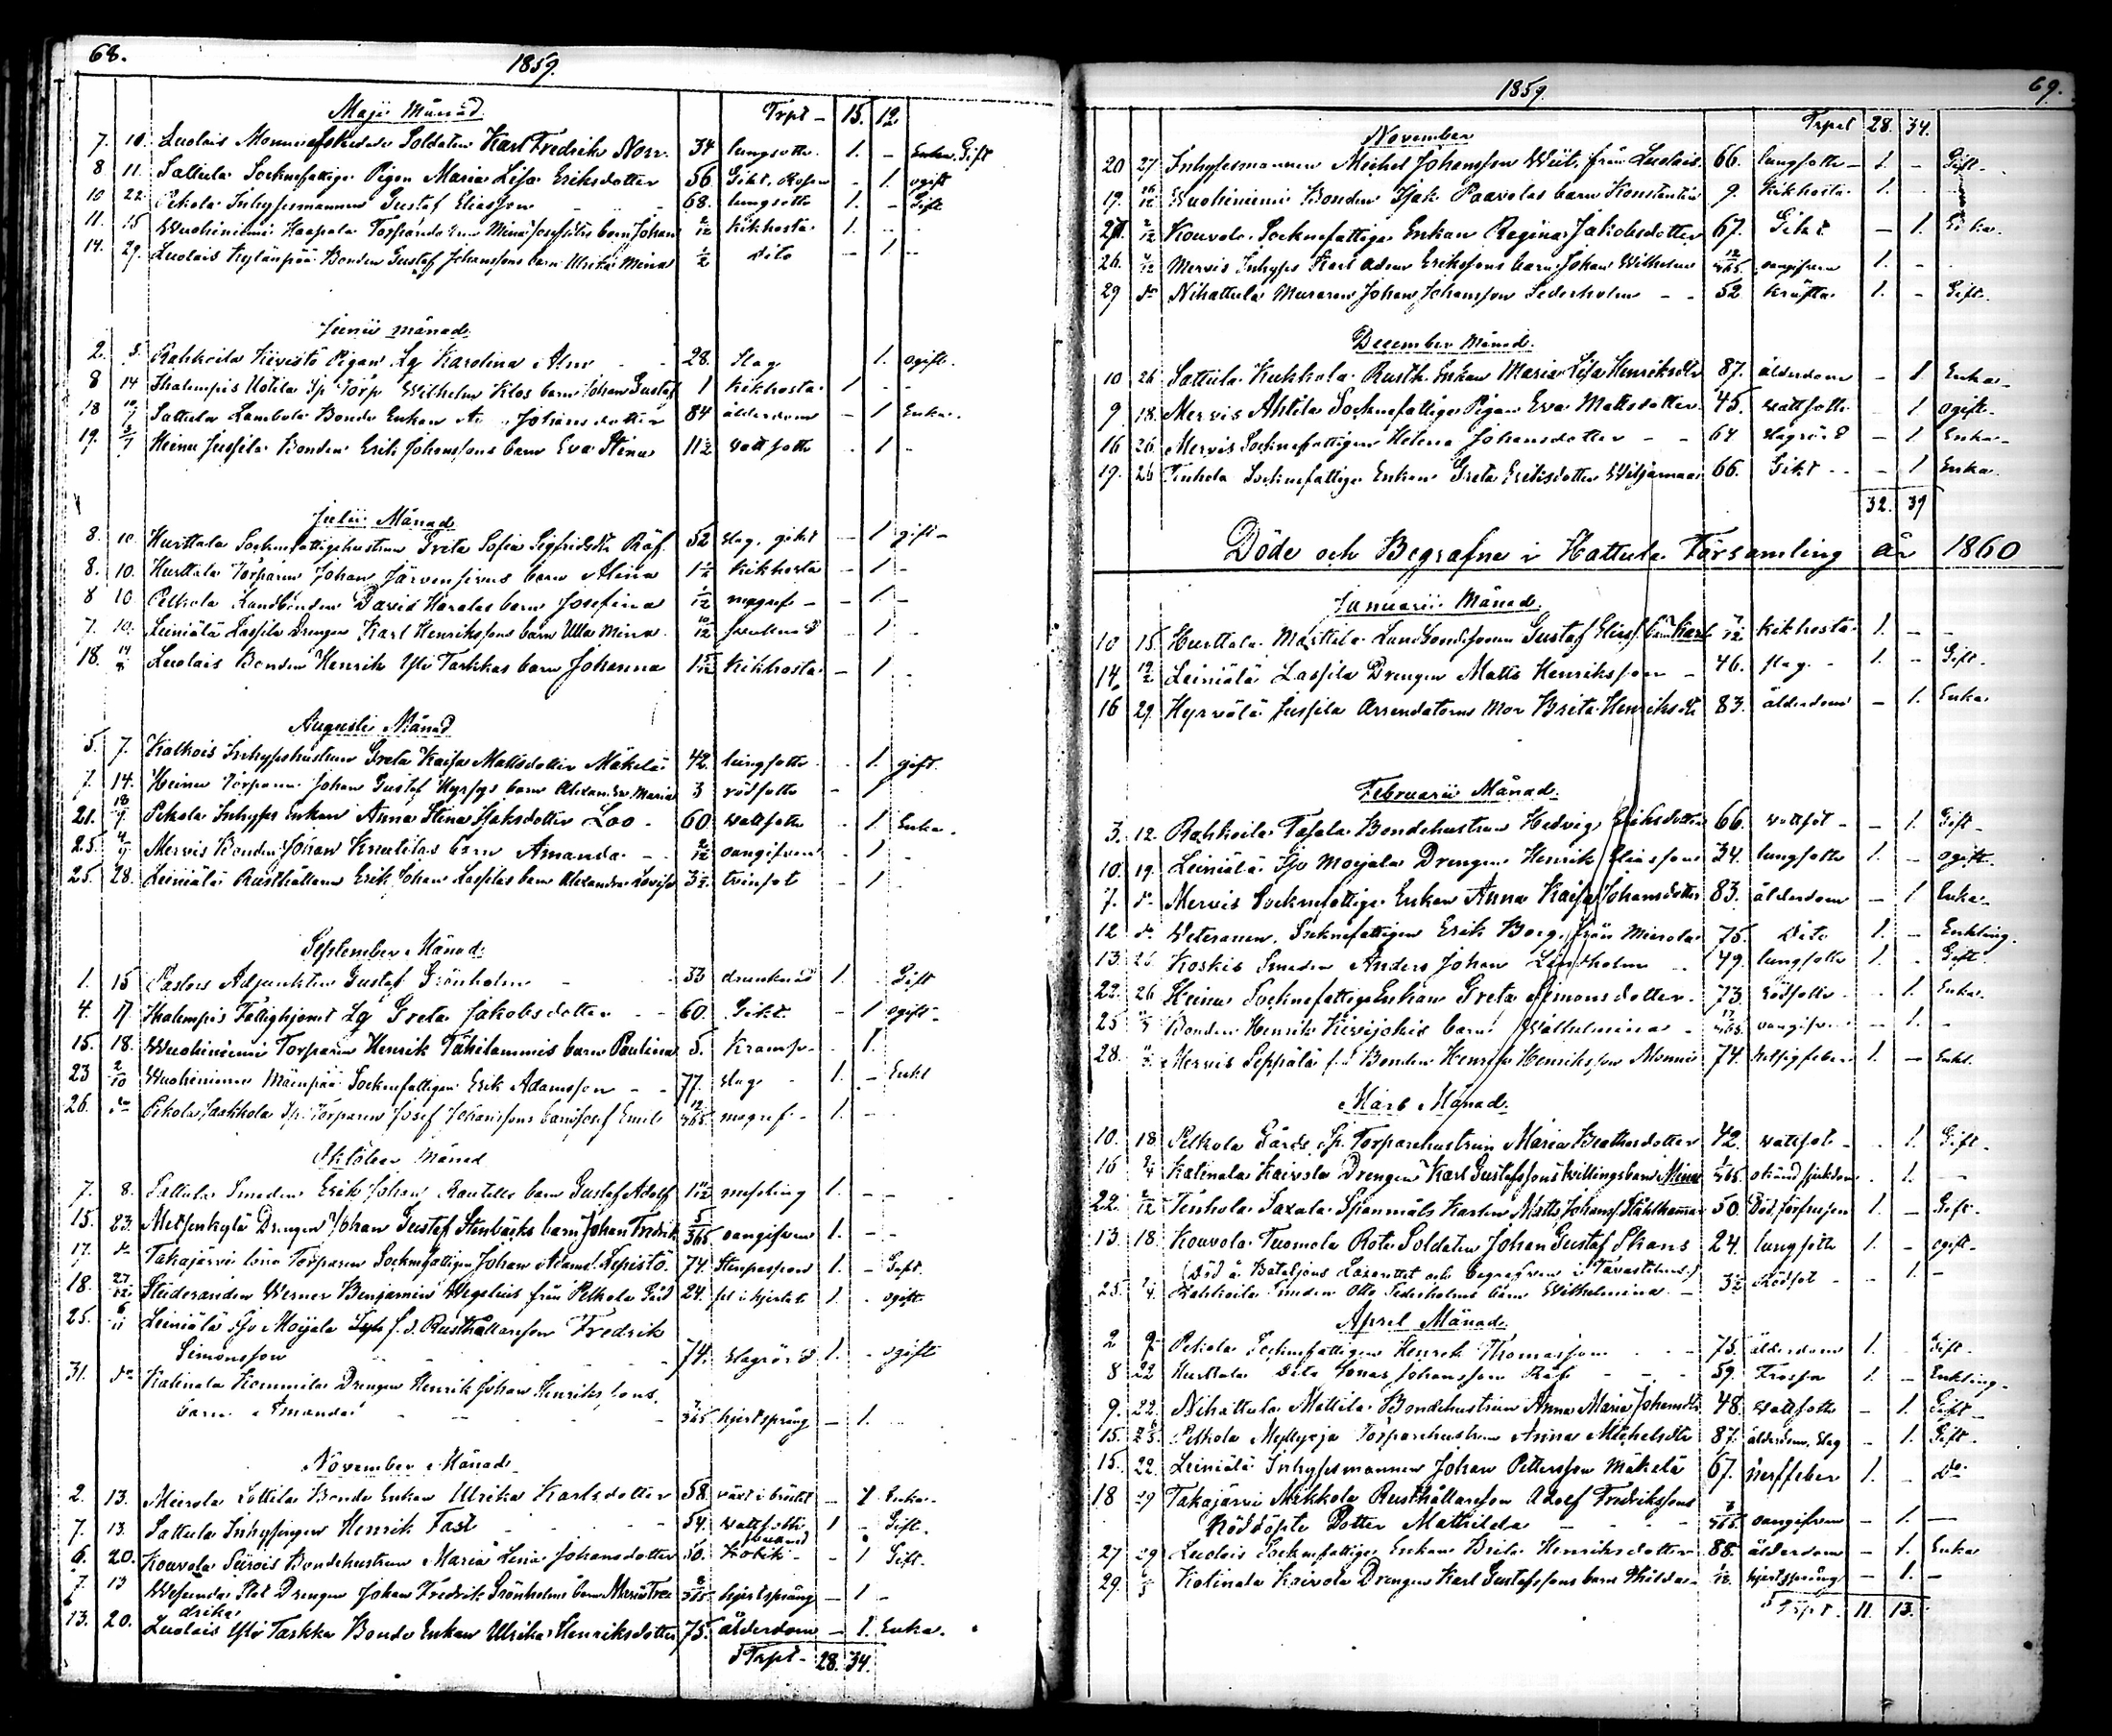 68.
1859.
Maji Månad
Trpt - 15. 12.
7. 10. Luolais Monni afskedade Soldaten Karl Fredrik Norr. 34 lungsotte. 1. - Gift
8 11. Sattula Socknefattige Pigan Maria Lisa Eriksdotter 56 Gikt, Rosen - 1. ogift
10 22 Pekola Inhysesmannen Gustaf Eliasson 68. lungsotte 1. - Gift
11. 15 Wuohiniemi Haapala barn Johan 2/12 kikhosta 1. -
14. 29. Luolais Kylänpää Bonden Gustaf Johanssons barn Ulrika Mina 1/2 dito - 1. -
Junii Månad
2. 5. Rahkoila Kivistö Pigan Lg Karolina Alm - 28. Slag 1. ogift.
8 14 Ihalempis Uotila Sp Torp Wilhelm Klos barn Johan Gustaf 1 kikhosta 1 - -
18 10/7 Sattula Lambola Bonde Enkan Johansdotter 84 ålderdom - 1 Enka.
19. 3/7 Heinu Jussila Bonden Erik Johanssons barn Eva Stina 11 1/2 vattsotte - 1 -
Julii Månad
8. 10. Hurttala Socknefattighustrun Greta Sofia Sigfridsdtr Räf. 52 slag, gikt - 1 gift -
8. 10. Hurttala Torparen Johan Järvensivus barn Alina 1 1/2 kikhosta - 1 -
8 10. Pelkola Landbonden David Haralas barn Josefina 1/12 magref - - 1. -
7. 10. Leiniälä Lassila Drengen Karl Henrikssons barn Ulla Mina. 10/12 - 1 -
18. 14/8 Luolais Bonden Henrik Yli Tarkkas barn Johanna kikhosta - 1 -
Augusti Månad
5. 7. Katkois Inhyseshustrun Greta Kaisa Mattsdotter Mäkelä 42. lungsotte - 1. gift.
7. 14. Heinu Torparen Johan Gustaf Hyrsys barn Alexandra Maria 3 rödsotte - 1
21. 18/9 Pekola Inhyses Enkan Anna Stina Isaksdotter Loo - 60 vattsotte - 1. Enka.
25. 4/9 Mervis Bonden Johan Knuutilas barn Amanda - - 2/12 oangifven - 1 -
25. 28. Leiniälä Rusthållaren Erik Johan Lassilas barn Alexandra Lovisa 3 1/2 tvinsot - 1 -
September Månad
1. 15 Pastors Adjunkten Gustaf Grönholm - 33 drunknad 1. Gift
4. 17. Ihalempis Fattighjonet Lg Greta Jakobsdotter - - 60. Gikt. - 1 ogift -
15. 18. Wuohiniemi Torparen Henrik Tähilammis barn Paulina 5. Kramp - - 1.
23 2/10 Wuohiniemi Mäenpää Socknefattigen Erik Adamsson - - 77. slag - 1. - Enkl
26. do Pekola Jaakkola Sp. Torparen Josef Johanssons barn Josef Emil 12/365 magref - 1. - -
Oktober Månad
7. 8. Sattula Smeden Erik Johan Rautells barn Gustaf Adolf 1 11/12 mesling 1. - -
15. 23. Metsenkylä Drengen Johan Gustaf Stenbäcks barn Johan Fredrik 5/365 oangifven 1. - -
17. do Takajärvi Torparen Socknefattigen Johan Adams. Lepistö. 74. Stenpassion 1. - Gift.
18. 27/12 Studeranden Werner Benjamin Wegelius från Pelkola Gård 24. fel i hjertat 1. - ogift
25. 6/11 Leiniälä Ifv Moijala f.d. Rusthållaresson Fredrik
Simonsson - - - - 74. slagrörd 1. - ogift
31. do Katinala Kommila Drengen Henrik Johan Henrikssons
barn Amanda - - - - 3/365 hjertsprång - 1. -
November Månad
2. 13. Mierola Lottila Bonde Enkan Ulrika Karlsdotter 58. växt i bröstet - 1 Enka.
7. 13. Sattula Inhysingen Henrik Fast - - - 54. vattsotte 1 - Gift.
6. 20. Kouvola Seurois Bondehustrun Maria Lena Johansdotter 50. Kolik - - 1 Gift.
7. 13 Drengen Johan Fredrik Grönholms barn Maria Fre
drika 8/365 hjertsprång - 1 -
13. 20. Luolais Yli Tarkka Bonde Enkan Ulrika Henriksdotter 75. ålderdom - 1. Enka.
Trpt - 28. 34.
1859.
69.
Trpt 28. 34.
November
20 27 Inhysesmannen Michel Johansson Wiit, från Luolais. 66. lungsotte - 1. - Gift.
17. 26/12 Wuohiniemi Bonden Isak Paavolas barn Konstantin 9. kikhosta 1. -
21. 2/12 Kouvola Socknefattige Enkan Regina Jakobsdotter 67. Gikt - 1. Enka.
26. 4/12 Mervis Inhyses Karl Adam Erikssons barn Johan Wilhelm 12/365 oangifven 1. -
29 do Nihattula Muraren Johan Johansson Sederholm - - 52 kräfta 1. - Gift.
December Månad.
10 26 Sattula Kukkola Rusth. Enkan Maria Lisa Henriksdtr 87. ålderdom - 1 Enka -
9. 18. Mervis Ahtila Socknefattige Pigan Eva Mattsdotter 45. vattsotte - 1 ogift -
16 26 Mervis Socknefattigen Helena Johansdotter - - 64 slagrörd - 1 Enka -
19. 26 Tenhola Socknefattige Enkan Greta Eriksdotter Wiljamaa 66. Gikt - - - 1 Enka.
32. 39
Döde och Begrafne i Hattula Församling år 1860
Januarii Månad.
10 15. Hurttala Marttila Landbondesonen Gustaf Eliass. barn Karl 7/12 kikhosta 1. - -
14. 19/2 Leiniälä Lassila Drengen Matts Henriksson - 46. slag - 1. - Gift.
16 29. Hyrvälä Jussila Arrendatorns Mor Brita Henriksdtr 83. ålderdom - 1. Enka
Februarii Månad.
3. 12. Rahkoila Tafala Bondehustrun Hedvig Eriksdotter 66. vattsot - - 1. Gift -
10. 19. Leiniälä Ifv Moijala Drengen Henrik Eliasson 34. lungsotte 1. - ogift.
7. do Mervis Socknefattige Enkan Anna Kaisa Johansdotter 83. ålderdom - 1 Enka -
12 do Veteranen, Socknefattigen Erik Borg, från Mierola 75. Dito 1. - Enkling.
13. 26 Koskis Smeden Anders Johan Lindholm - 49. lungsotte 1. - Gift.
22. 26 Heinu Socknefattige Enkan Greta Simonsdotter. 73. rödsotte - - 1. Enka.
25 Bonden Henrik Kivijokis barn Wilhelmina - 17/365 oangifven - 1. -
28. Mervis Seppälä f.d. Bonden Henrik Henriksson Monni 74. 1. - Enkl.
Mars Månad.
10. 18 Pelkola Gårds Sp. Torparehustrun Maria Beatasdotter 42. vattsot - - 1. Gift -
16 9/4 Katinala Kaivola Drengen Karl Gustafssons tvillingsbarn Mina 1/365 okänd sjukdom - 1. -
22. Tenhola Saxala Spannmåls Karlen Matts Johanss. Stålhammar 50. 1. - Gift.
13. 18. Kouvola Tuomola Rote Soldaten Johan Gustaf Skans 24. lungsotte 1. - ogift -
(Död å Bataljons Lazarettet och begrafven i Tavastehus)
25. 9/4 Rahkoila Smeden Otto Sederholms barn Wilhelmina - 3 1/2 Rödsot - - 1 -
April Månad.
2 9. Pekola Socknefattigen Henrik Thomasson - - - 75. ålderdom 1. Gift.
8 22 Hurttala Dito Jonas Johansson Räf - - - 59. Frossa 1. - Enkling.
9. 22. Nihattula Mattila Bondehustrun Anna Maria Johansdtr 48. vattsotte - 1. Gift -
15. 6/5 Pelkola Myllyoja Torparehustrun Anna Michelsdtr 87. ålderdom, slag - 1. Gift.
15. 22. Leiniälä Inhysesmannen Johan Pettersson Mäkelä 67. nerffeber 1. - Do
18 29 Takajärvi Mikkola Rusthållaresson Adolf Fredrikssons
Nöddöpte Dotter Mathilda - - - 3/365. oangifven - 1. -
27 29 Luolais Socknefattige Enkan Brita Henriksdotter 88. ålderdom - 1. Enka
29. 6/5 Katinala Kaivola Drengen Karl Gustafssons barn Hilda - hjertsprång - 1. -
Trpt. 11. 13.